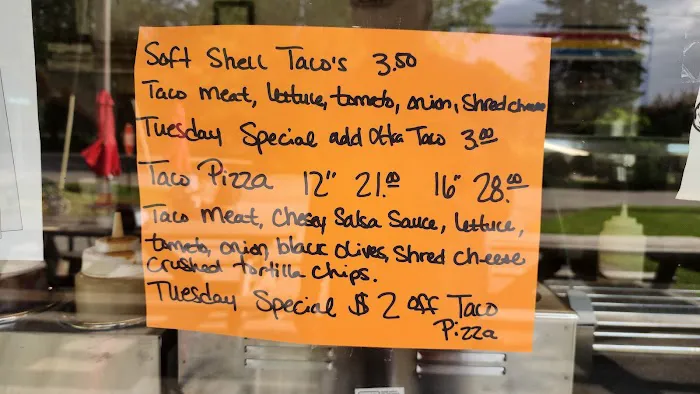 Soft Shell Taco's 3.50
Taco meat, lettuce, tomato, onion, Shred cheese
Tuesday Special add Taco 3.00
Taco Pizza 12" 21.00 16" 28.00
Taco Meat, Chesey Salsa Sauce, lettuce,
tomato, onion, black olives, Shred cheese
Crushed tortilla chips.
Tuesday Special $2 off Taco
Pizza